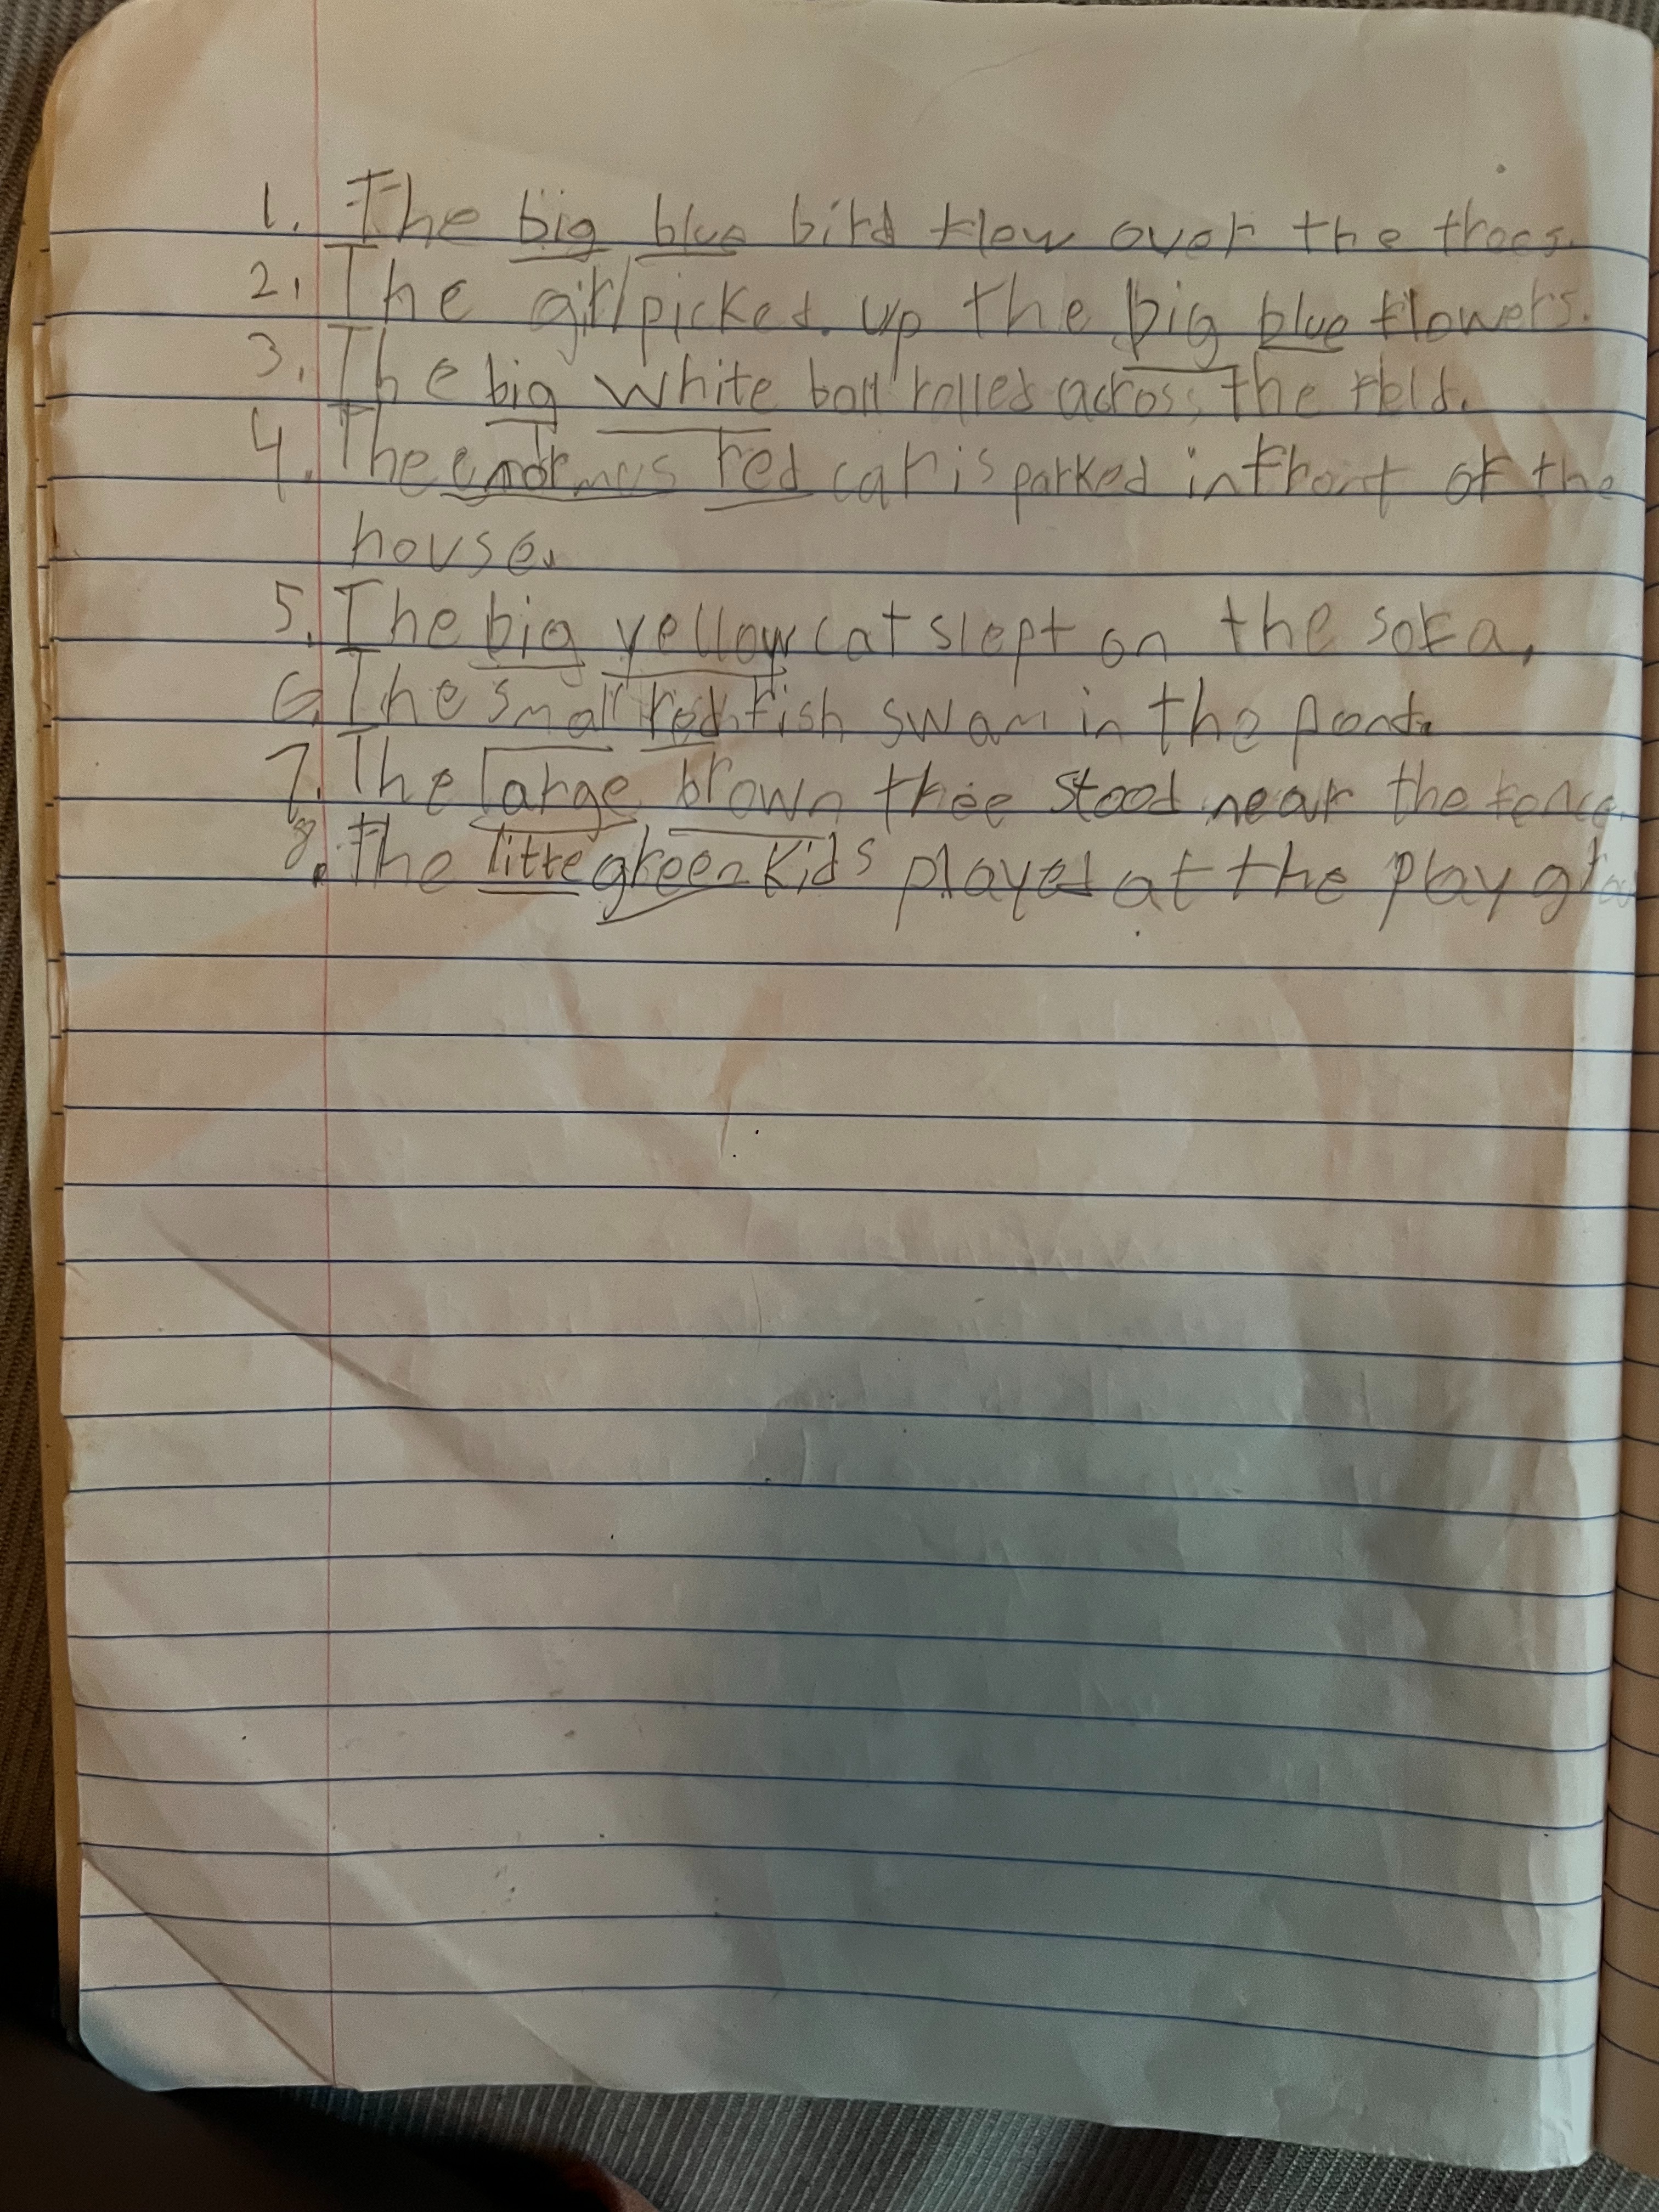 1. The big blue bird flew over the trees.
2. The girl picked up the big blue flowers.
3. The big white ball rolled across the field.
4. The enormus red car is parked in front of the
house.
5. The big yellow cat slept on the sofa.
6. The small red fish swam in the pond.
7. The large brown tree stood near the fence.
8. The little green kids played at the play